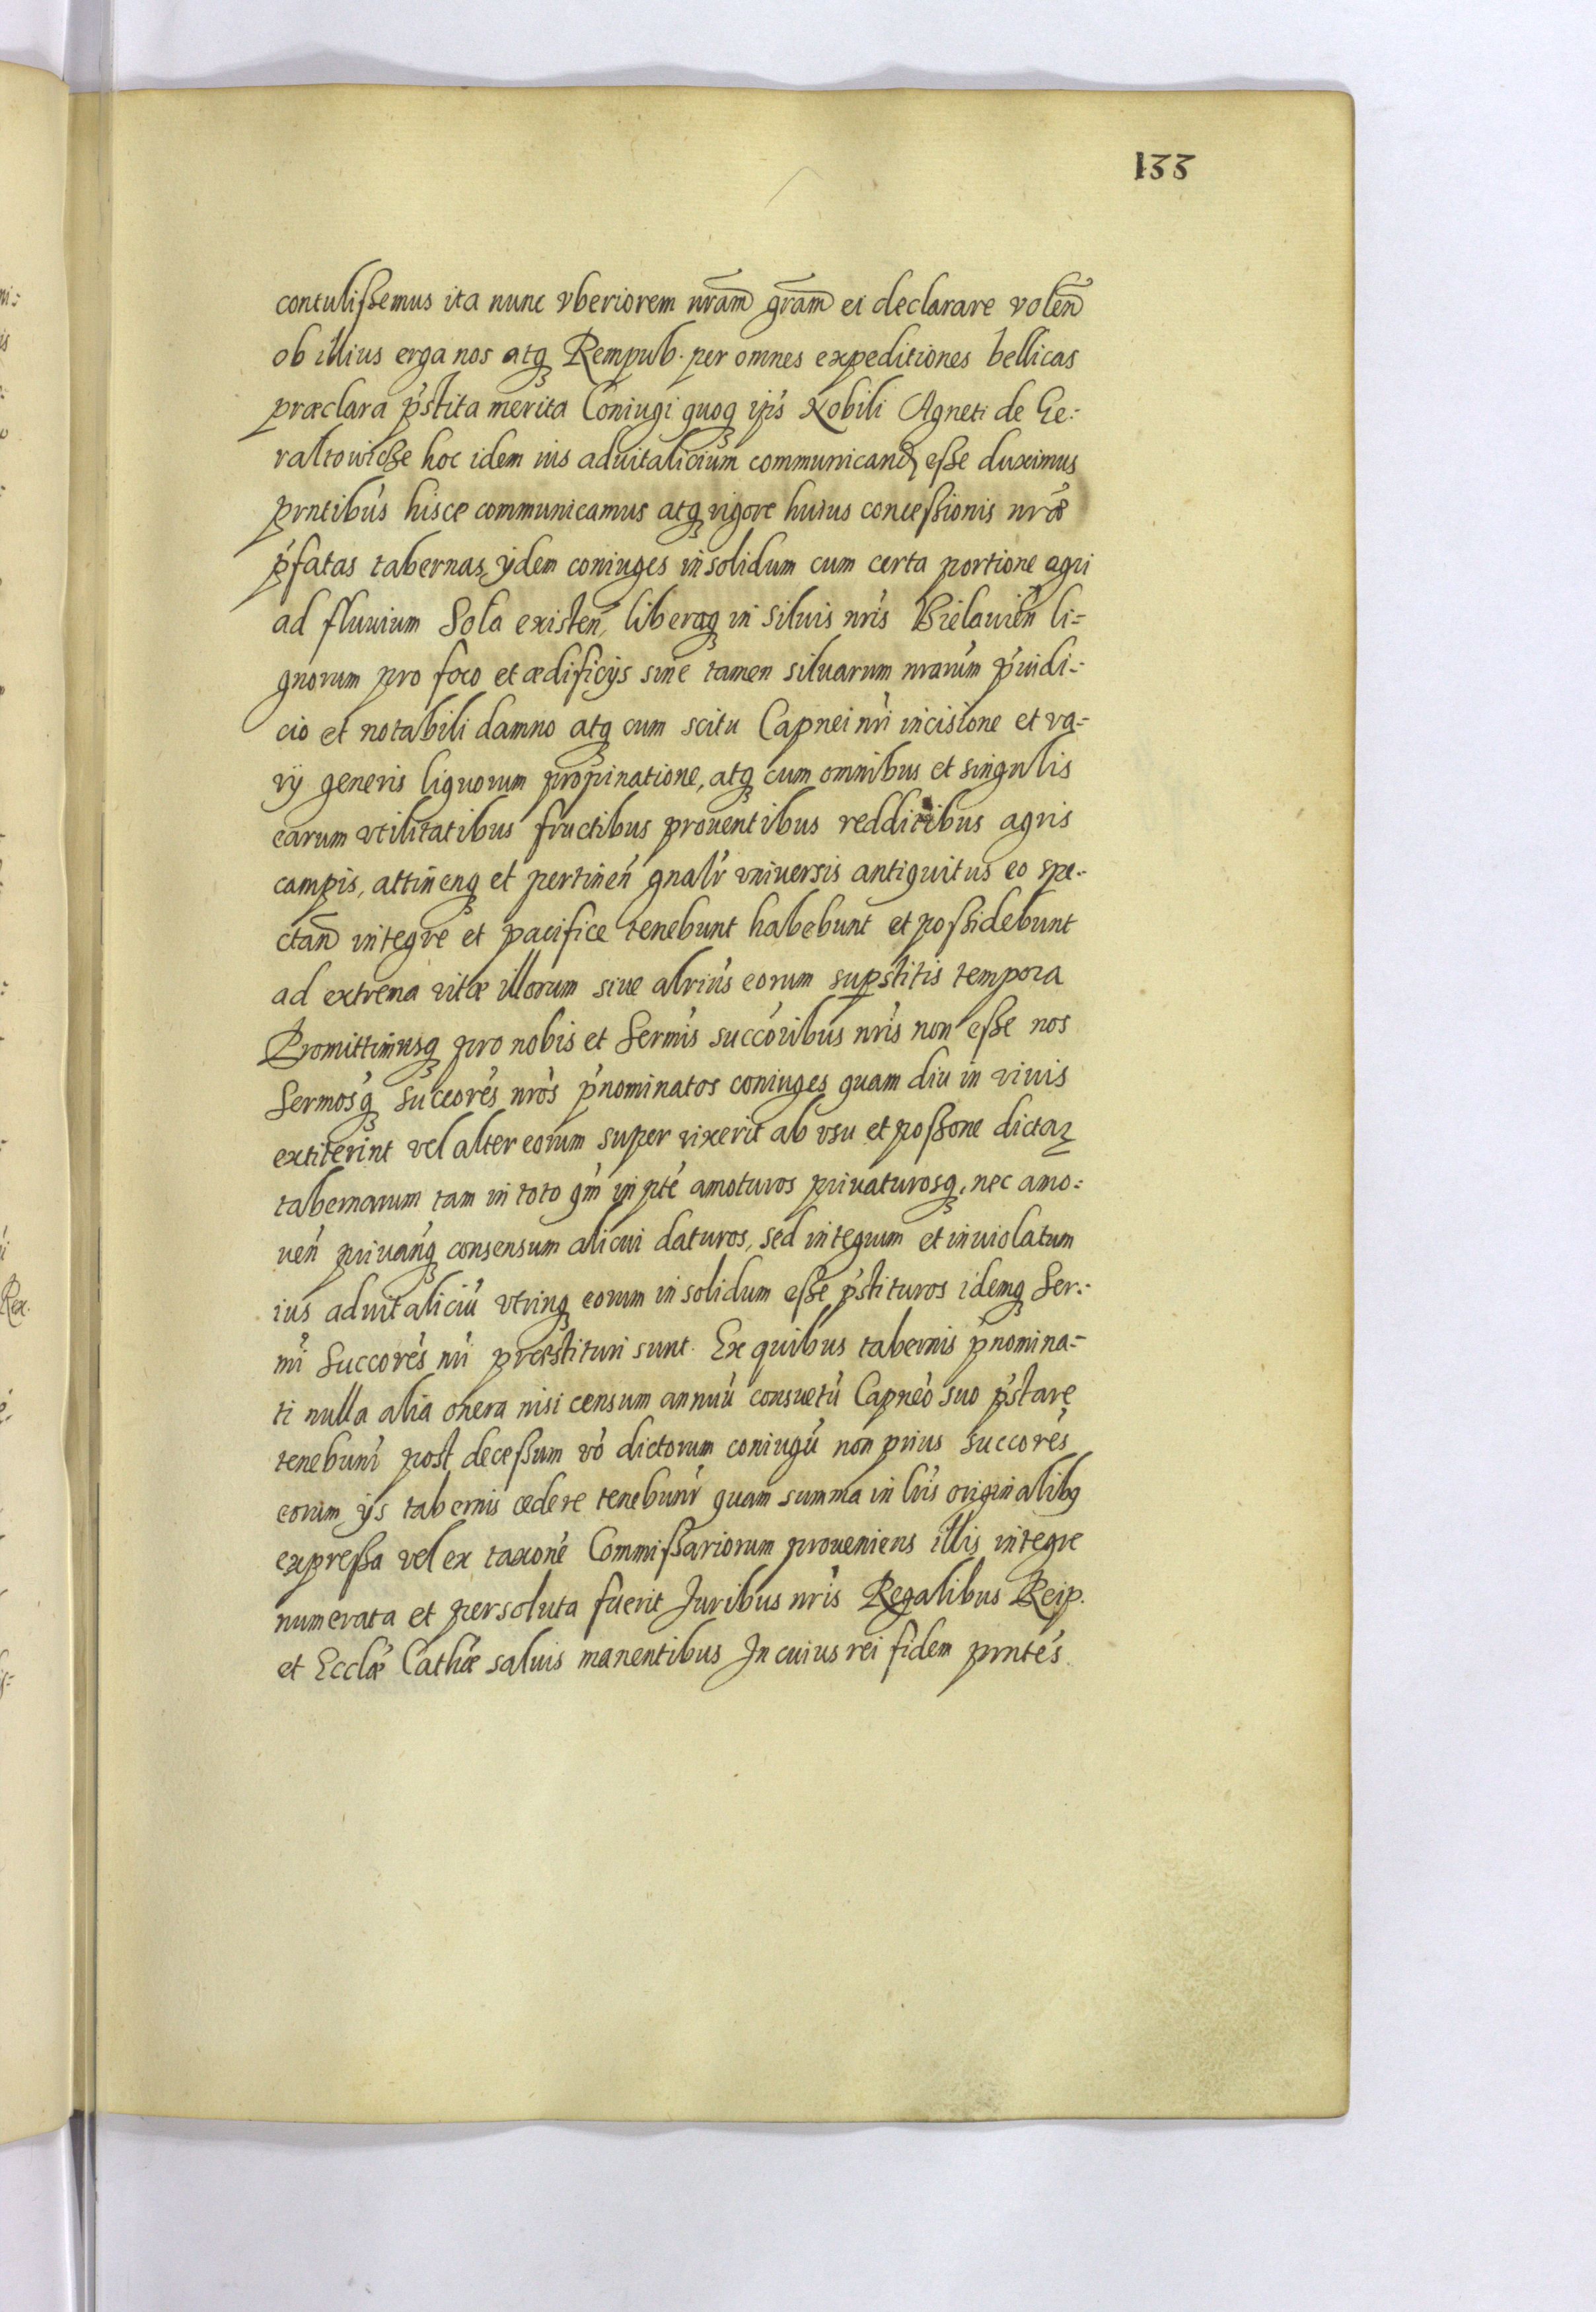 133
contulißemus ita nunc vberiorem nram̃ gram̃ ei declarare volen̄
ob illius erga nos atq Rempub. per omnes expeditiones bellicas
præclara p̍stita merita Coniugi quoq ip̍s Nobili Agneti de Ge-:
raltowicße hoc idem ius aduitalicium communicand eße duximus
prntibu̍s hisce communicamus atq vigore huius conceßionis nræ̍
p̍fatas tabernas ijdem coniuges in solidum cum certa portione agri
ad fluuium Sola existen̍, liberaq in siluis nri̍s Bielauien̍ li-
gnorum pro foco et ædificijs sine tamen siluarum nraru̍m p̍iudi-:
cio et notabili damno atq cum scitu Capnei nri̍ incisione et va-
rij generis liquorum propinatione, atq cum omnibus et singulis
earum vtilitatibus fructibus prouentibus redditibus agris
campis, attinenq et pertinen̍ gnalr̍ vniversis antiquitus eo spe-:
ctan̄ integre et pacifice tenebunt habebunt et poßidebunt
ad extrema vitæ illorum siue alriu̍s eorum supstitis tempora
Promittimusq pro nobis et Sermi̍s succori̍bus nri̍s non eße nos
Sermos̍q succore̍s nro̍s p̍nominatos coniuges quam diu in viuis
extiterint vel alter eorum super vixerit ab vsu et poßone dictaꝝ
tabernarum tam in toto qm̍ in pte̍ amoturos priuaturosq, nec amo-:
uen̍ priuan̍q consensum alicui daturos, sed integrum et inuiolatum
ius aduitaliciu̍ vtriusq eorum in solidum eße p̍stituros idemq Ser-:
mi̍ Succore̍s nri̍ præstituri sunt. Ex quibus tabernis p̍nomina-
ti nulla alia onera nisi censum annuu̍ consuetu̍ Capneo̍ suo p̍stare
tenebunr̍ post deceßum vo̍ dictorum coniugu̍ non prius succore̍s
eorum ijs tabernis cedere tenebunr̍ quam summa in lri̍s originalibq
expreßa vel ex taxone̍ Commißariorum proueniens illis integre
numerata et persoluta fuerit Juribus nri̍s Regalibus Reip.
et Ecclæ̍ Cathæ̍ saluis manentibus In cuius rei fidem prnte̍s